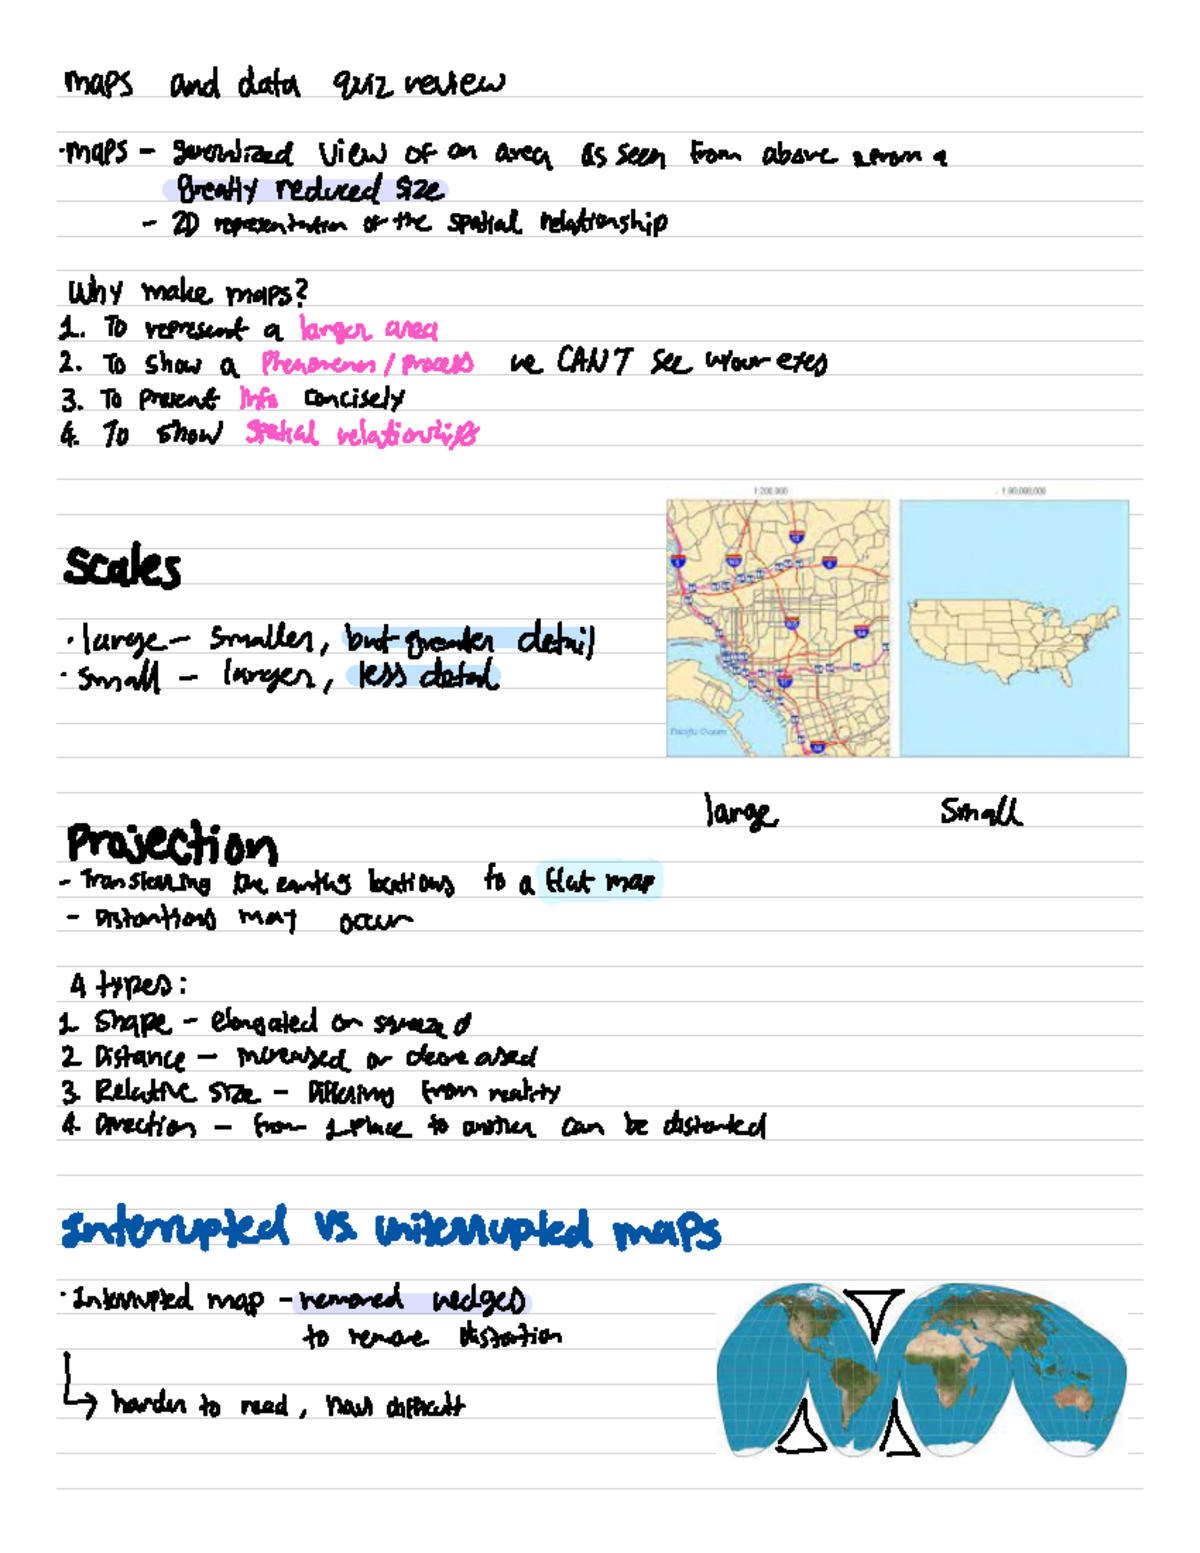 maps and data quiz review
·maps – generalized view of an area as seen from above from a
greatly reduced size
– 2D representation of the spatial relationship
Why make maps?
1. To represent a larger area
2. To show a Phenomenon / process we CAN'T see w/our eyes
3. To present info concisely
4. To show spatial relationships
1:200,000
1:80,000,000
Scales
· large – smaller, but greater detail
· small – larger, less detail
Pacific Ocean
large small
Projection
– Transferring the earth's locations to a flat map
– Distortions may occur
4 types:
1. Shape – elongated or squeezed
2. Distance – increased or decreased
3. Relative size – differing from reality
4. Direction – from 1 place to another can be distorted
Interrupted vs uninterrupted maps
· Interrupted map – removed wedges
to remove distortion
↳ harder to read, navi difficult